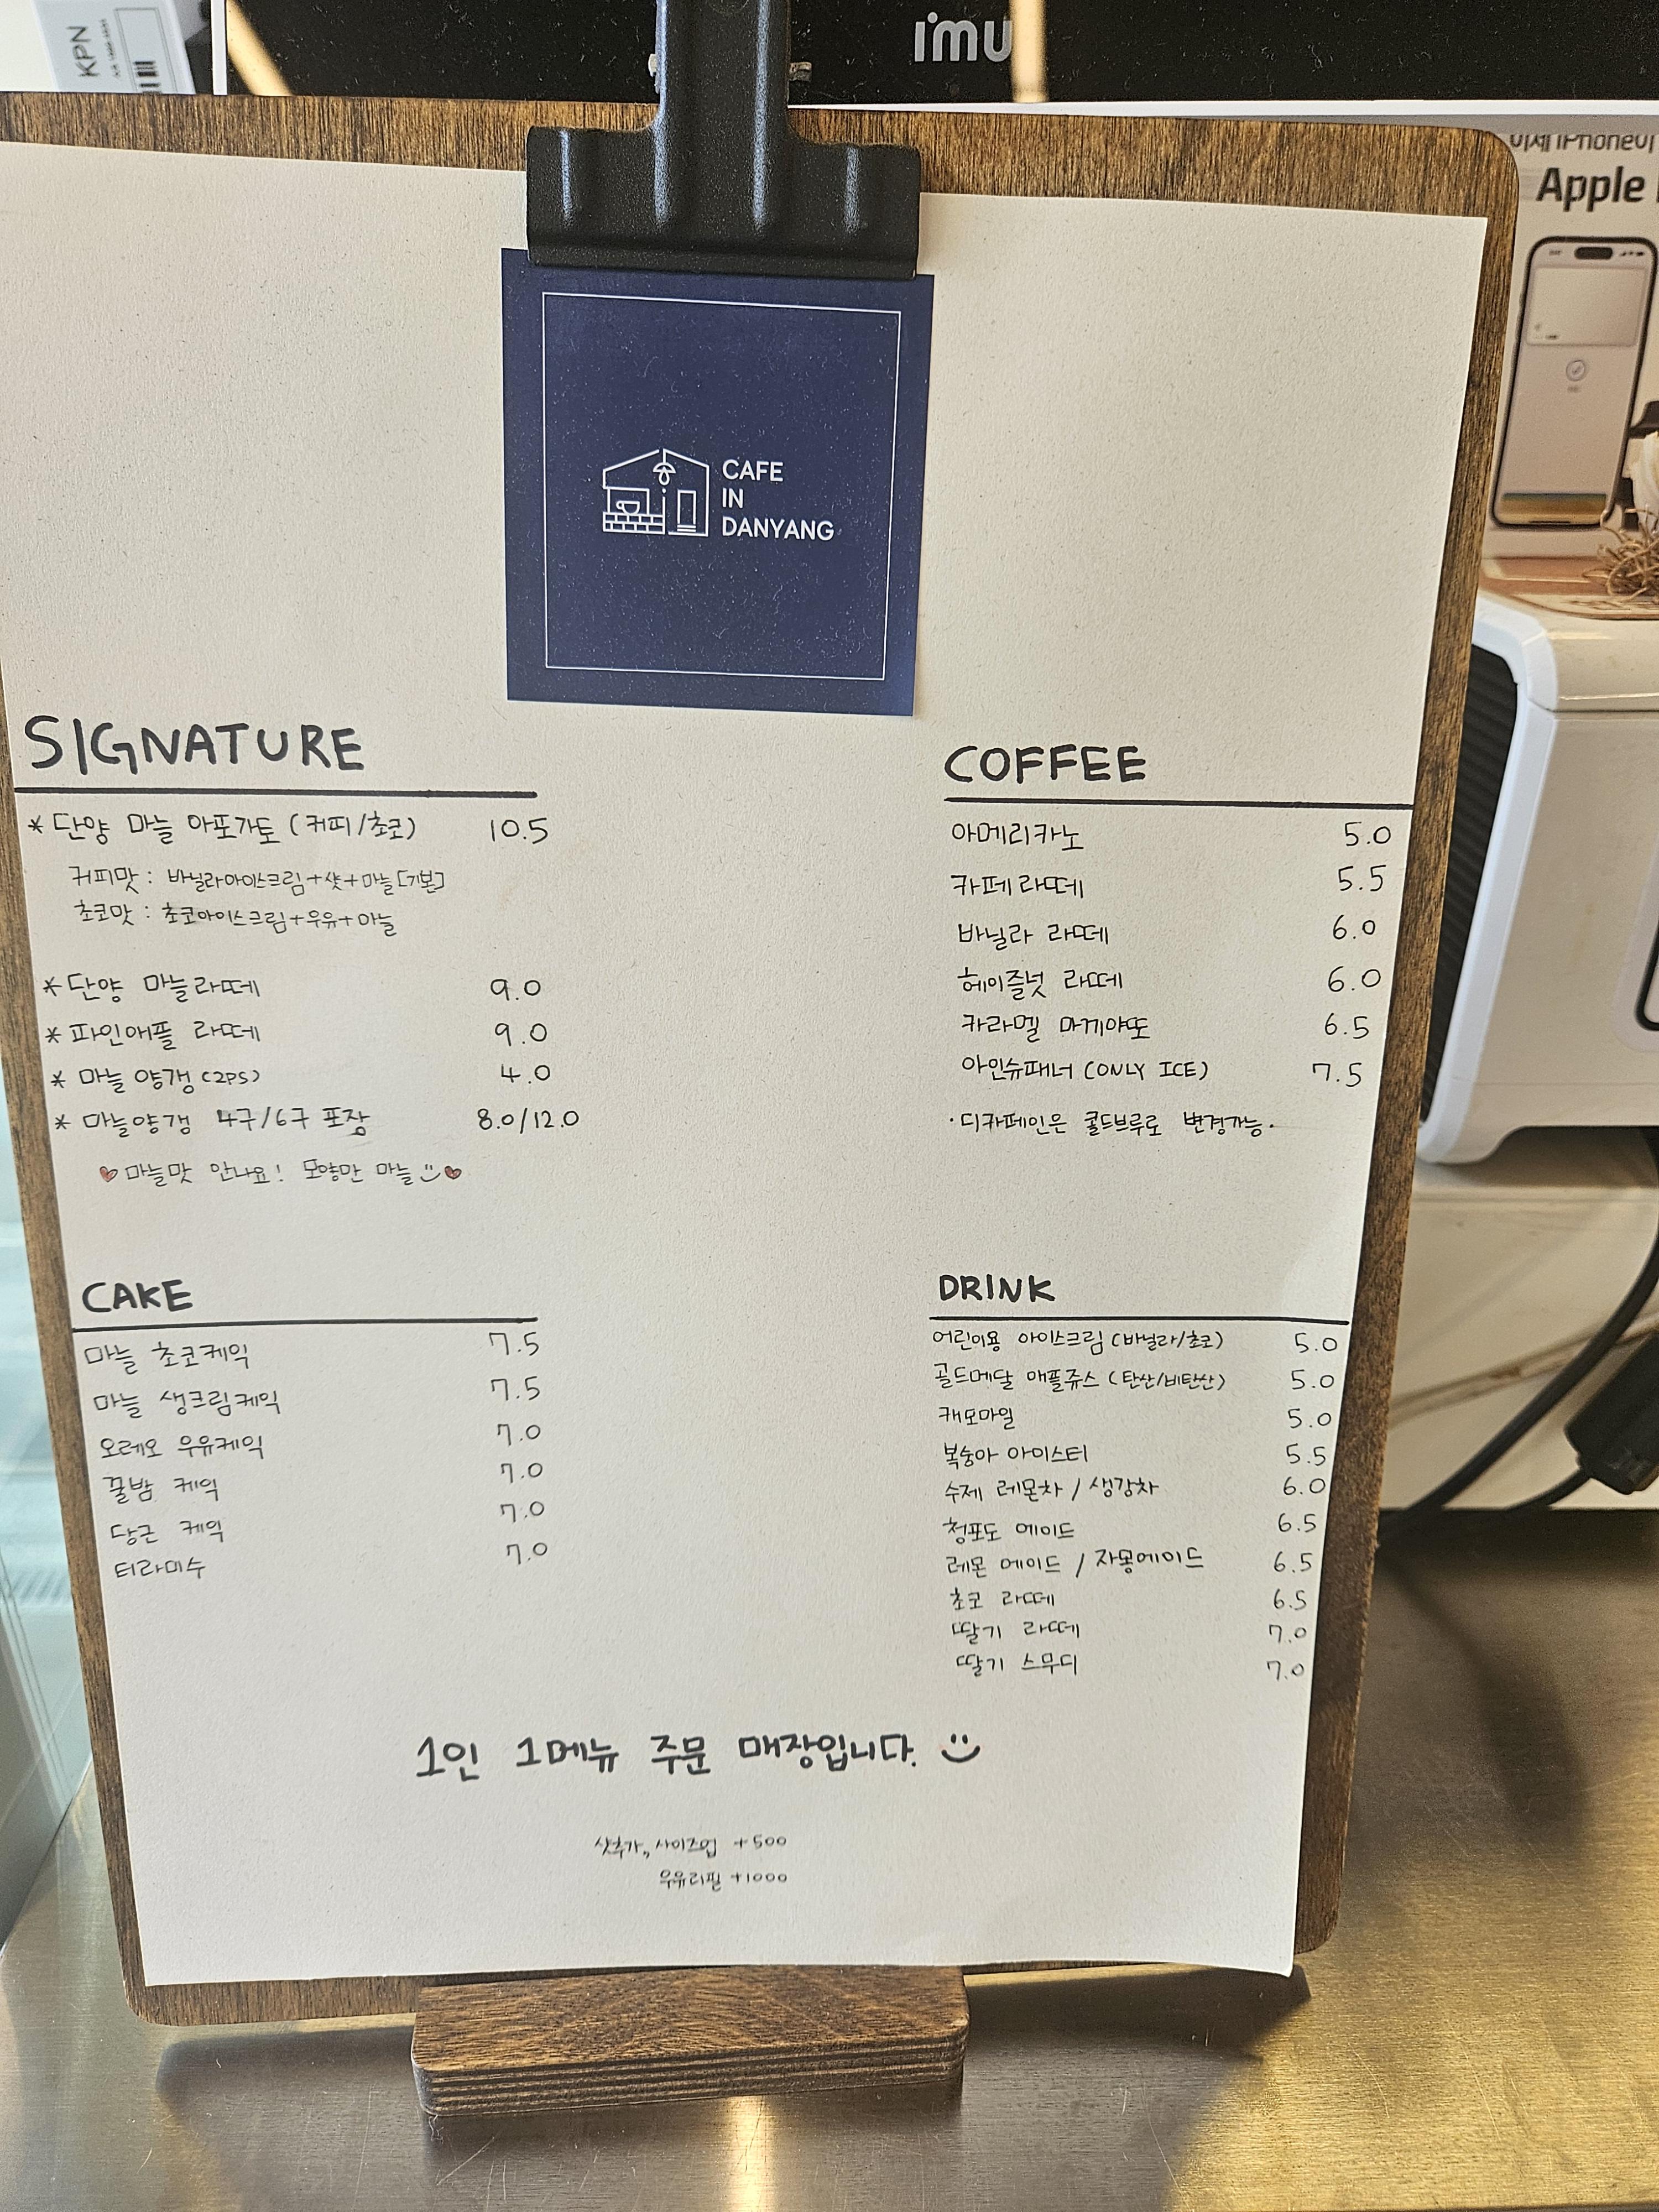 KPN
imu
이제 iPhone이
Apple
CAFE
IN
DANYANG
SIGNATURE
* 단양 마늘 아포가토 (커피/초코) 10.5
커피맛 : 바닐라아이스크림+샷+마늘[기본]
초코맛 : 초코아이스크림+우유+마늘
* 단양 마늘라떼 9.0
* 파인애플 라떼 9.0
* 마늘 양갱 (2PS) 4.0
* 마늘양갱 4구/6구 포장 8.0/12.0
마늘맛 안나요! 모양만 마늘
COFFEE
아메리카노 5.0
카페라떼 5.5
바닐라 라떼 6.0
헤이즐넛 라떼 6.0
카라멜 마끼야또 6.5
아인슈패너 (ONLY ICE) 7.5
·디카페인은 콜드브루로 변경가능·
CAKE
마늘 초코케익 7.5
마늘 생크림케익 7.5
오레오 우유케익 7.0
꿀밤 케익 7.0
당근 케익 7.0
티라미수 7.0
DRINK
어린이용 아이스크림 (바닐라/초코) 5.0
골드메달 애플쥬스 (탄산/비탄산) 5.0
캐모마일 5.0
복숭아 아이스티 5.5
수제 레몬차 / 생강차 6.0
청포도 에이드 6.5
레몬 에이드 / 자몽에이드 6.5
초코 라떼 6.5
딸기 라떼 7.0
딸기 스무디 7.0
1인 1메뉴 주문 매장입니다.
샷추가,, 사이즈업 +500
우유리필 +1000